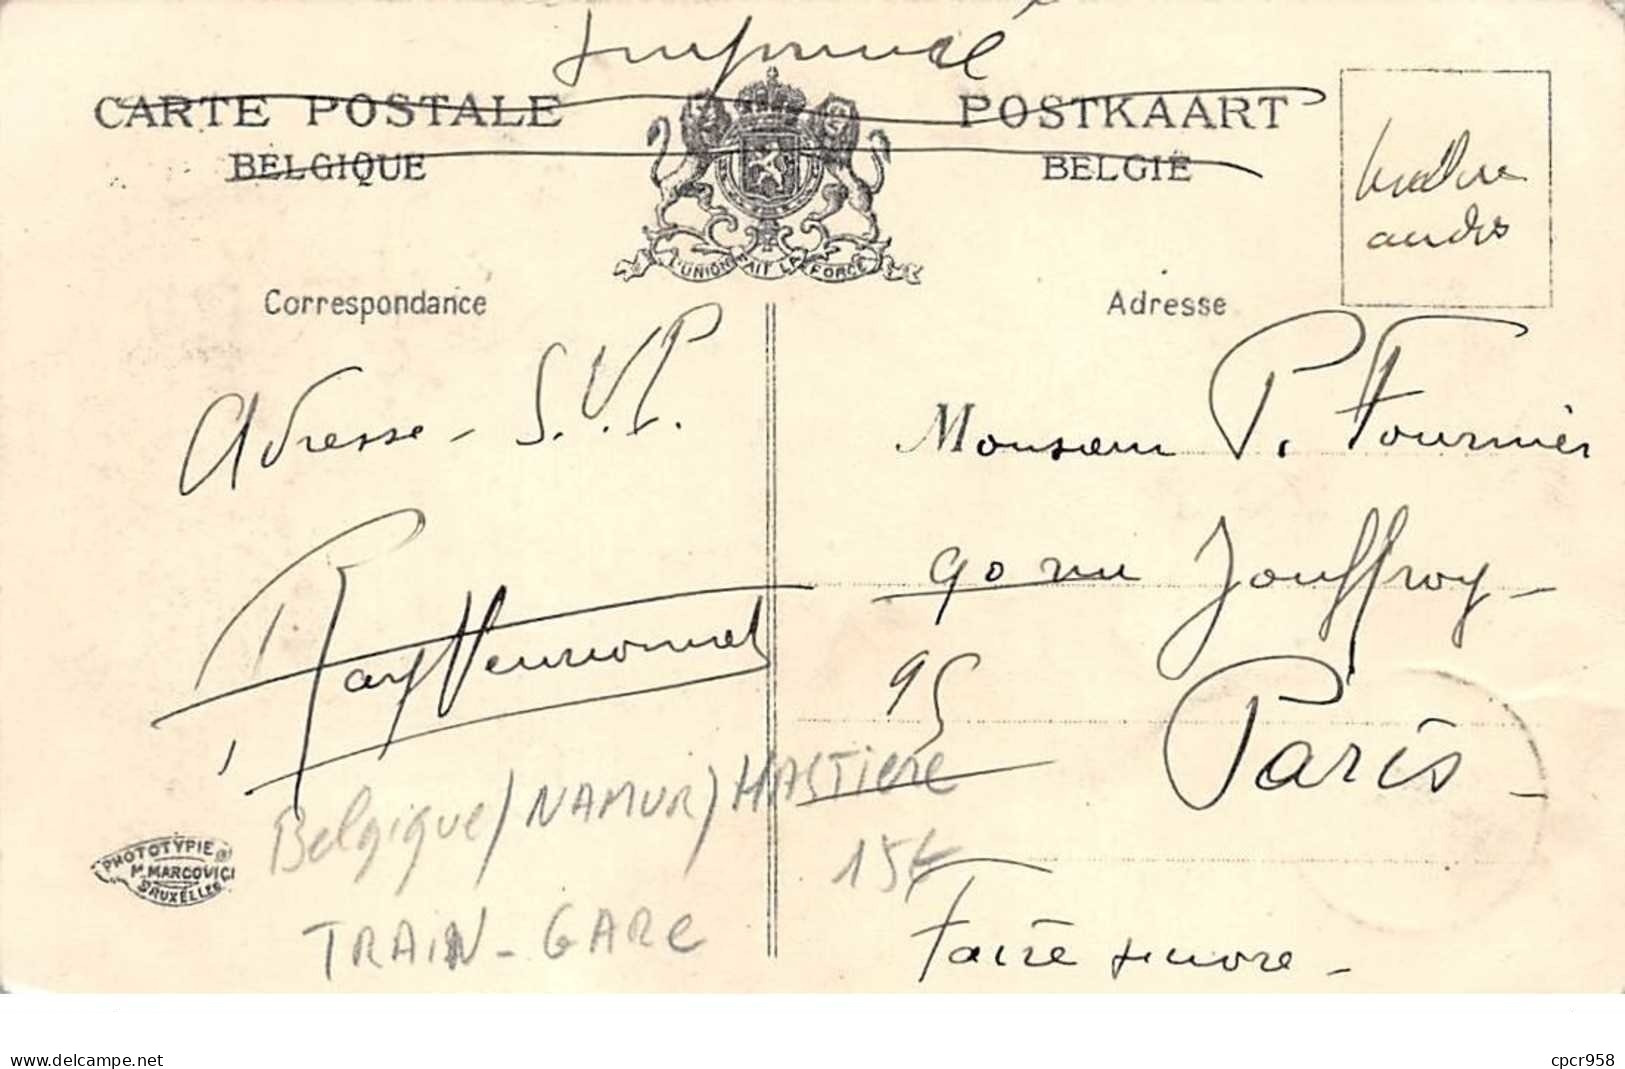 Imprimé
CARTE POSTALE
POSTKAART
BELGIQUE
BELGIË
L'UNION FAIT LA FORCE
timbre
au dos
Correspondance
Adresse
Adresse - S.V.P.
Monsieur P. Fournier
90 rue Jouffroy -
95
Paris -
Belgique / NAMUR / HASTIERE
15€
TRAIN - GARE
PHOTOTYPIE
M. MARCOVICI
BRUXELLES
Faire suivre -
delcampe.net
cpcr958